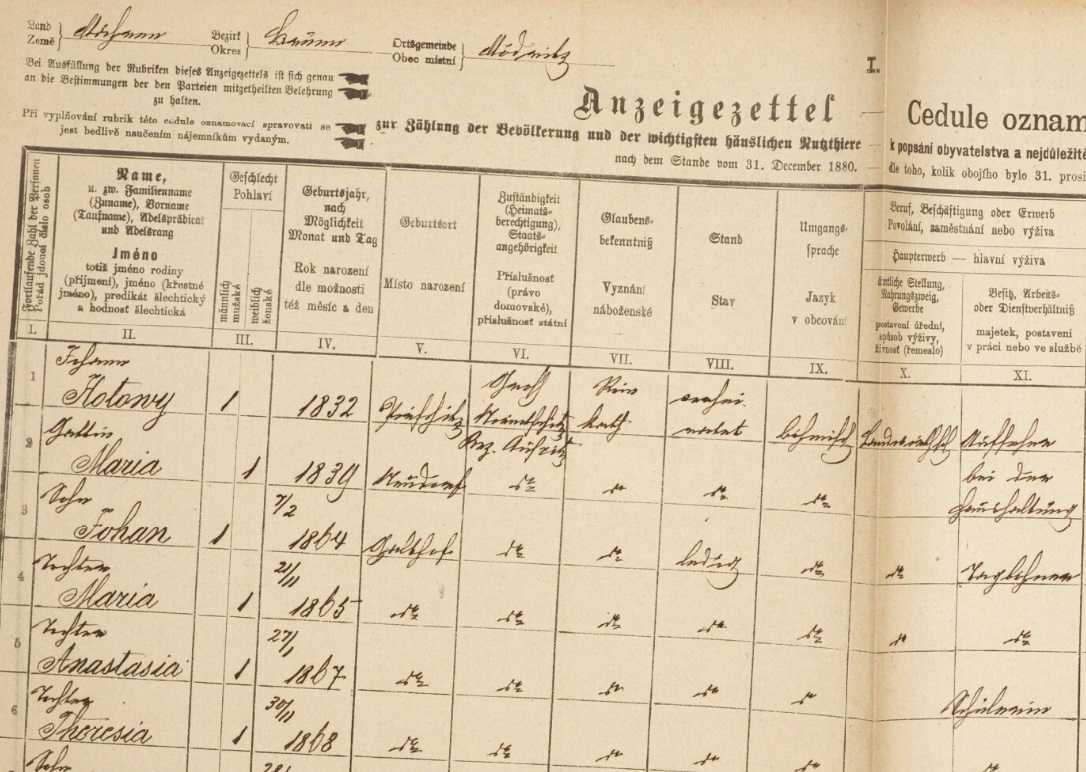 Land
Země
Mähren
Bezirk
Okres
Brünn
Ortsgemeinde
Obec místní
Mödritz
Bei Ausfüllung der Rubriken dieses Anzeigezettels ist sich genau
an die Bestimmungen der den Parteien mitgetheilten Belehrung
zu halten.
Při vyplňování rubrik této cedule oznamovací spravovati se
jest bedlivě naučením nájemníkům vydaným.
I.
Anzeigezettel
zur Zählung der Bevölkerung und der wichtigsten häuslichen Nutzthiere
nach dem Stande vom 31. December 1880.
Cedule oznam
k popsání obyvatelstva a nejdůležitě
dle toho, kolik obojího bylo 31. prosi
Fortlaufende Zahl der Personen
Pořád jdoucí číslo osob
Name,
u. zw. Familienname
(Zuname), Vorname
(Taufname), Adelsprädicat
und Adelsrang
Jméno
totiž jméno rodiny
(příjmení), jméno (křestné
jméno), predikát šlechtický
a hodnost šlechtická
Geschlecht
Pohlaví
männlich
mužské
weiblich
ženské
Geburtsjahr,
nach
Möglichkeit
Monat und Tag
Rok narození
dle možnosti
též měsíc a den
Geburtsort
Místo narození
Zuständigkeit
(Heimats-
berechtigung),
Staats-
angehörigkeit
Příslušnost
(právo
domovské),
příslušnost státní
Glaubens-
bekenntniß
Vyznání
náboženské
Stand
Stav
Umgangs-
sprache
Jazyk
v obcování
Beruf, Beschäftigung oder Erwerb
Povolání, zaměstnání nebo výživa
Haupterwerb — hlavní výživa
ämtliche Stellung,
Nahrungszweig,
Gewerbe
postavení úřední,
způsob výživy,
živnost (řemeslo)
Besitz, Arbeits-
oder Dienstverhältniß
majetek, postavení
v práci nebo ve službě
I. II. III. IV. V. VI. VII. VIII. IX. X. XI.
1
Johann
Hotowy
1
1832
Groß
Röm
kath.
verhei
ratet
böhmisch
Aufseher
2
Gattin
Maria
1
1839
Neudorf
dto
dto
dto
dto
bei der
Haushaltung
3
Sohn
Johan
1
7/2
1864
Galthof
dto
dto
ledig
dto
dto
Taglöhner
4
Tochter
Maria
1
21/11
1865
dto
dto
dto
dto
dto
dto
dto
5
Tochter
Anastasia
1
27/1
1867
dto
dto
dto
dto
dto
Schülerin
6
Tochter
Theresia
1
30/11
1868
dto
dto
dto
dto
dto
dto
Sohn